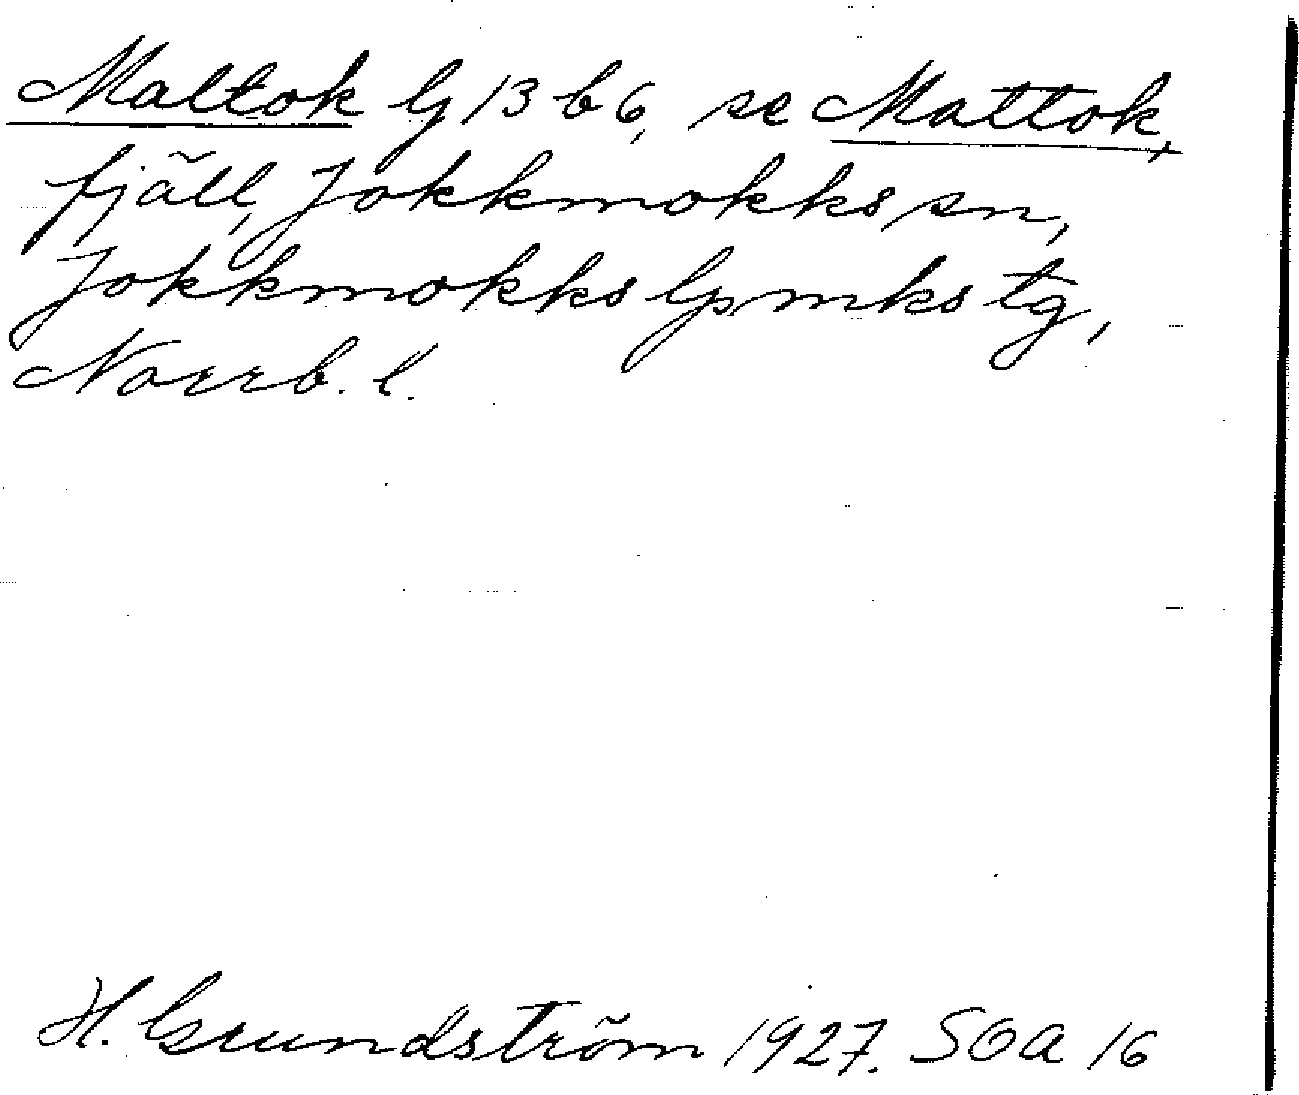 Maltok G 13 b 6, se Mattok,
fjäll, Jokkmokks sn,
Jokkmokks lpmks tg,
Norrb. l.
H. Grundström 1927. SOA 16